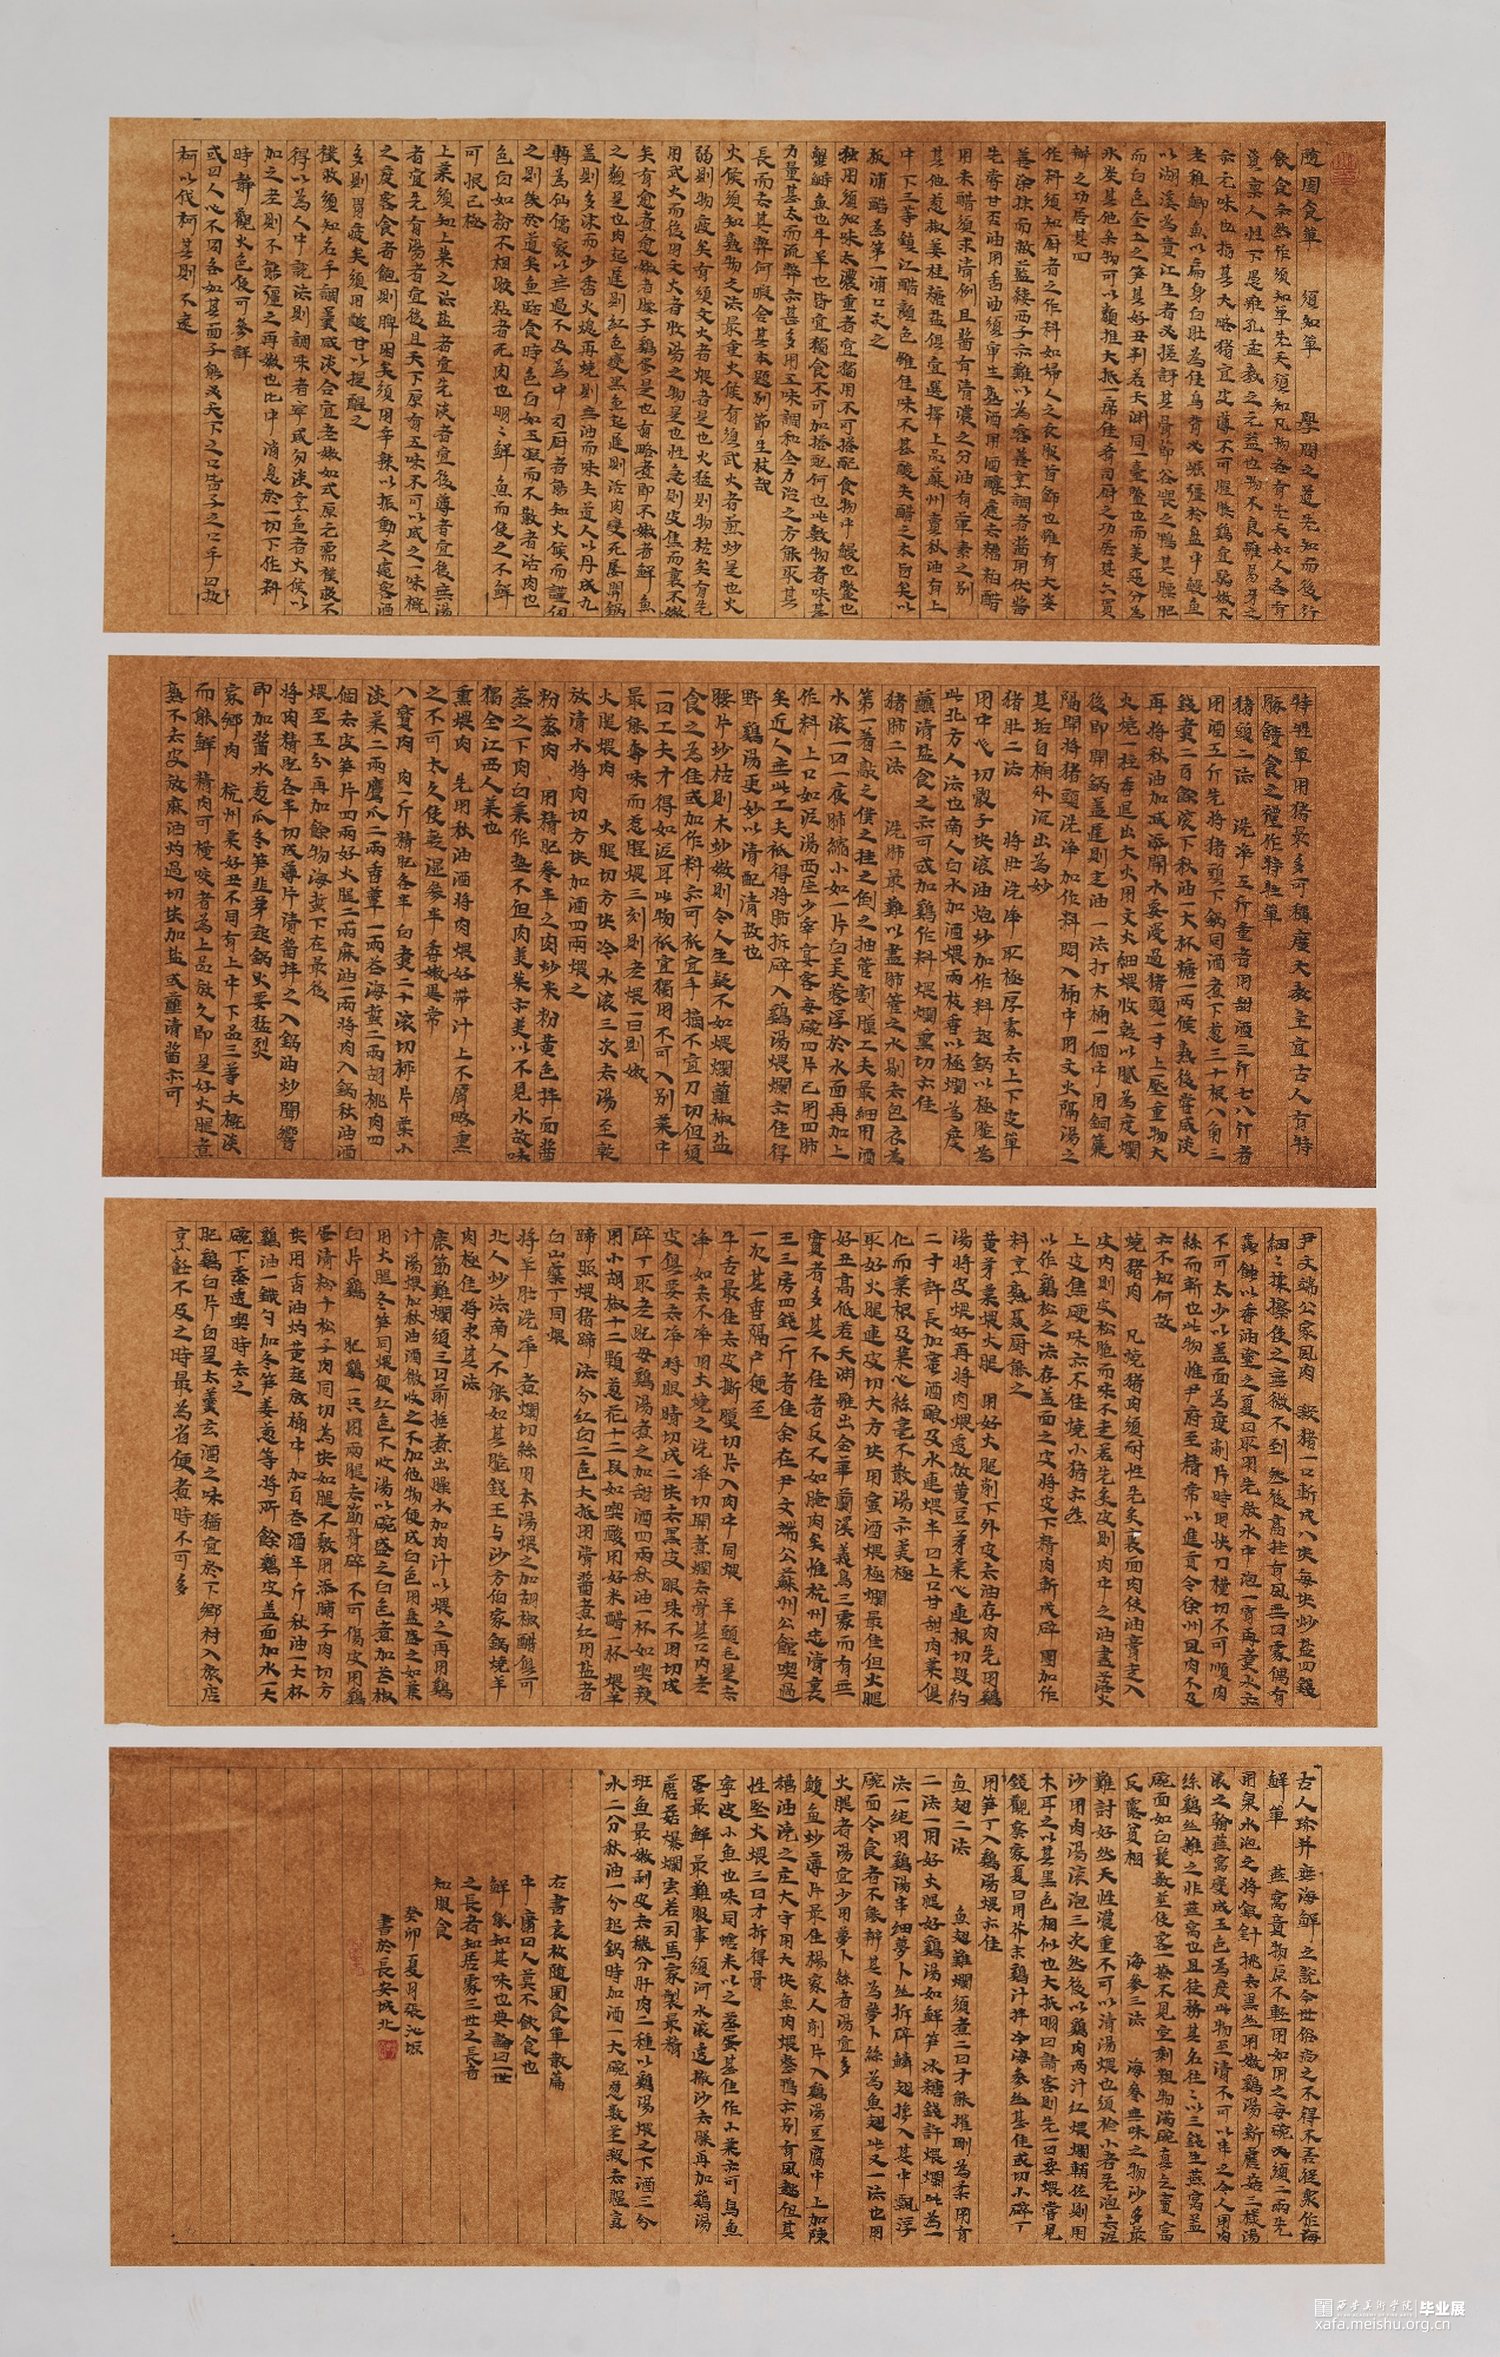 隨園食單　須知單　學問之道先知而後行
飲食亦然作須知單先天須知凡物各有先天如人各有
資稟人性下愚雖孔孟教之無益也物不良雖易牙之
亦無味也指其大略豬宜皮薄不可腥臊雞宜騸嫩不
老稚鯽魚以扁身白肚為佳烏背必崛彊於盤中鰻魚
以湖溪為貴江生者必槎枒其骨節谷喂之鴨其膘肥
而白色壅土之筍其好丑判若天淵同一臺鲞也而美惡分為
冰炭其他杂物可以類推大抵一席佳肴司厨之功居其六買
辦之功居其四
作料須知厨者之作料如婦人之衣服首飾也雖有天姿
善涂抹而敝蓝縷西子亦難以為容善烹調者醬用伏醬
先嘗甘否油用香油須审生熟酒用酒釀應去糟粕醋
用米醋須求清例且醬有清濃之分油有葷素之别
其他葱椒姜桂糖盐俱宜選擇上品蘇州賣秋油有上
中下三等鎮江醋顏色雖佳味不甚酸失醋之本旨矣以
板浦醋為第一浦口次之
獨用須知味太濃重者宜獨用不可搭配食物中鰻也鱉也
蟹鰣魚也牛羊也皆宜獨食不可加搭配何也此數物者味甚
力量甚大而流弊亦甚多用五味調和全力治之方能取其
長而去其弊何暇舍其本題别節生枝哉
火候須知熟物之法最重火候有須武火者煎炒是也火
弱则物疲矣有須文火者煨者是也火猛则物枯矣有先
用武火而後用文火者收湯之物是也性急则皮焦而裏不嫩
矣有愈煮愈嫩者腰子鷄蛋是也有略煮即不嫩者鮮魚
之類是也肉起遲则紅色變黑魚起遲则活肉變死屡開鍋
盖则多沫而少香火熄再燒则無油而味失道人以丹成九
轉為仙儒家以無過不及為中司厨者能知火候而謹伺
之则幾於道矣魚臨食時色白如玉凝而不散者活肉也
色白如粉不相膠粘者死肉也明明鮮魚而使之不鮮
可恨已極
上菜須知上菜之法盐者宜先淡者宜後薄者宜後無湯
者宜先有湯者宜後且天下原有五味不可以咸之一味概
之度客食者飽则脾困矣須用辛辣以振動之慮客酒
多则胃疲矣須用酸甘以提醒之
補救須知名手調羹咸淡合宜老嫩如式原無需補救不
得以為人中說法则調味者寧或勿淡烹魚者火候以
加之老则不能彊之再嫩也此中消息於一切下作料
時靜觀火色便可參詳
或曰人心不同各如其面子能必天下之口皆子之口乎曰执
柯以伐柯其则不遠
特牲單用猪最多可稱廣大教主宜古人有特
豚饋食之禮作特牲單
猪頭二法　洗净五斤重者用甜酒三斤七八斤者
用酒五斤先將猪頭下鍋同酒煮下葱三十根八角三
錢煮二百餘滾下秋油一大杯糖一两候熟後嘗咸淡
再將秋油加減添開水要漫過猪頭一寸上壓重物大
火燒一柱香退出大火用文火細煨收乾以膩為度爛
後即開鍋盖遲则走油一法打大桶一個中用銅簾
隔開將猪頭洗净加作料悶入桶中用文火隔湯之
其垢自桶外流出為妙
猪肚二法　將肚洗净取極厚處去上下皮單
用中心切骰子块滾油炮炒加作料起鍋以極脆為
此北方人法也南人白水加酒煨兩枝香以極爛為度
蘸清盐食之亦可或加鷄作料煨爛熏切亦佳
猪肺二法　洗肺最難以盡肺管之水剔去包衣為
第一着敲之僕之挂之倒之抽管割膜工夫最細用酒
水滾一日一夜肺縮小如一片白芙蓉浮於水面再加上
作料上口如泥湯西厓少宰宴客每碗四片已用四肺
矣近人無此工夫祗得將肺拆碎入鷄湯煨爛亦佳得
野鷄湯更妙以清配清故也
腰片炒枯则木炒嫩则令人生疑不如煨爛蘸椒盐
食之為佳或加作料亦可衹宜手摘不宜刀切但須
一日工夫才得如泥耳此物衹宜獨用不可入别菜中
最能奪味而惹腥煨三刻则老煨一日则嫩
火腿煨肉　火腿切方块冷水滾三次去湯至乾
放清水將肉切方块加酒四两煨之
粉蒸肉　用精肥參半之肉炒米粉黄色拌面醬
蒸之下肉白菜作墊不但肉美菜亦美以不見水故味
獨全江西人菜也
熏煨肉　先用秋油酒將肉煨好带汁上木屑略熏
之不可太久使乾湿參半香嫩異常
八寳肉　肉一斤精肥各半白煮二十滾切柳片菜小
淡菜二两鷹爪二两香蕈一两花海蜇二两胡桃肉四
個去皮笋片四两好火腿二两麻油一两將肉入鍋秋油酒
煨至五分再加餘物海蜇下在最後
將肉精肥各半切成薄片清醬拌之入鍋油炒聞響
即加醬水葱瓜冬笋韭芽起鍋火要猛烈
家鄉肉　杭州菜好丑不同有上中下三等大概淡
而能鮮精肉可橫咬者為上品放久即是好火腿煮
熟不去皮放麻油灼過切块加盐或蘸清醬亦可
尹文端公家風肉　殺猪一口斬成八块每块炒盐四錢
細細揉擦使之無微不到然後高挂有風無日處偶有
蟲蝕以香油塗之夏日取用先放水中泡一宵再煮水亦
不可太少以盖面為度削片時用快刀横切不可順肉
絲而斬也此物惟尹府至精常以進貢今徐州風肉不及
亦不知何故
燒猪肉　凡燒猪肉須耐性先炙裏面肉使油膏走入
皮内则皮松脆而味不走若先炙皮则肉中之油盡落火
上皮焦硬味亦不佳燒小猪亦然
以作鷄松之法存盖面之皮將皮下精肉斬成碎團加作
料烹熟聂厨能之
黄芽菜煨火腿　用好火腿削下外皮去油存肉先用鷄
湯將皮煨好再將肉煨透放黄豆芽菜心連根切段約
二寸許長加蜜酒酿及水連煨半日上口甘甜肉菜俱
化而菜根及菜心絲毫不散湯亦美極
取好火腿連皮切大方块用蜜酒煨極爛最佳但火腿
好丑高低若天渊雖出金華蘭溪義烏三處而有無
實者多其不佳者反不如腌肉矣惟杭州忠清裏
王三房四錢一斤者佳余在尹文端公蘇州公館喫過
一次其香隔户便至
牛舌最佳去皮撕膜切片入肉中同煨　羊頭毛要去
净如去不净用火燒之洗净切開煮爛去骨其口内老
皮俱要去净將眼睛切成二块去黑皮眼珠不用切成
碎丁取老肥母鷄湯煮之加甜酒四两秋油一杯如喫辣
用小胡椒十二顆葱花十二段如喫酸用好米醋一杯煨羊
蹄照煨猪蹄法分红白二色大抵用清醬煮红用盐者
白山藥丁同煨
將羊肚洗净煮爛切絲用本湯煨之加胡椒醋俱可
北人炒法南人不能如其脆錢王与沙方伯家鍋燒羊
肉極佳將求其法
鹿筋難爛須三日前捶煮出臊水加肉汁以煨之再用鷄
汁湯煨加秋油酒微收之不加他物便成白色用盘盛之如兼
用火腿冬笋同煨便红色不收湯以碗盛之白色煮加花椒
白片鷄　肥鷄一只用兩腿去筋骨碎不可傷皮用鷄
蛋清粉千松子肉同切為块如腿不敷用添脯子肉切方
块用香油灼黄起放桶中加百花酒半斤秋油一大杯
鷄油一鐵勺加冬笋姜葱等將所餘鷄皮盖面加水一大
碗下蒸透喫時去之
肥鷄白片自是太羹玄酒之味猶宜於下鄉村入旅店
烹飪不及之時最為省便煮時不可多
古人珍并無海鮮之說今世俗尚之不得不吾從衆作海
鮮單　燕窩貴物原不輕用如用之每碗必須二两先
用泉水泡之將銀針挑去黑絲用嫩鷄湯新蘑菇三樣湯
滾之翰燕窩變成玉色為度此物至清不可以串之今人用肉
絲鷄絲雜之非燕窩也且徒務其名往往以三錢生燕窩盖
碗面如白髮數莖使客一撩不見空剩粗物滿碗真乞賣富
反露貧相　海參三法　海參無味之物沙多最
難討好然天性濃重不可以清湯煨也須檢小者先泡去泥
沙用肉湯滾泡三次然後以鷄肉两汁红煨爛輔佐则用
木耳之以其黑色相似也大抵明日請客则先一日要煨嘗見
錢觀察家夏日用芥末鷄汁拌冷海參絲甚佳或切小碎丁
用笋丁入鷄湯煨亦佳
魚翅二法　魚翅難爛須煮二日才能摧剛為柔用有
二法一用好火腿好鷄湯如鮮笋冰糖錢許煨爛此為一
法一純用鷄湯串細萝卜丝拆碎鳞翅掺入其中飄浮
碗面令食者不能辨其為萝卜絲為魚翅此又一法也用
火腿者湯宜少用萝卜絲者湯宜多
鰒魚炒薄片最佳楊家人削片入鷄湯豆腐中上加陳
糟油浇之庄大守用大块魚肉煨整鴨亦别有風趣但其
性堅火煨三日才拆得骨
寧波小魚也味同蝦米以之蒸蛋甚佳作小菜亦可烏魚
蛋最鮮最難服事須河水滾透撤沙去臊再加鷄湯
蘑菇爆爛雲若司馬家製最精
班魚最嫩剥皮去穢分肝肉二種以鷄湯煨之下酒三分
水二分秋油一分起鍋時加酒一大碗葱数莖殺去腥宜
右書袁枚随園食單散篇
中庸曰人莫不飲食也
鮮能知其味也典論曰一世
之長者知居處三世之長者
知服食
癸卯夏月張沁垠
書於長安城北
西安美術学院 毕业展
xafa.meishu.org.cn